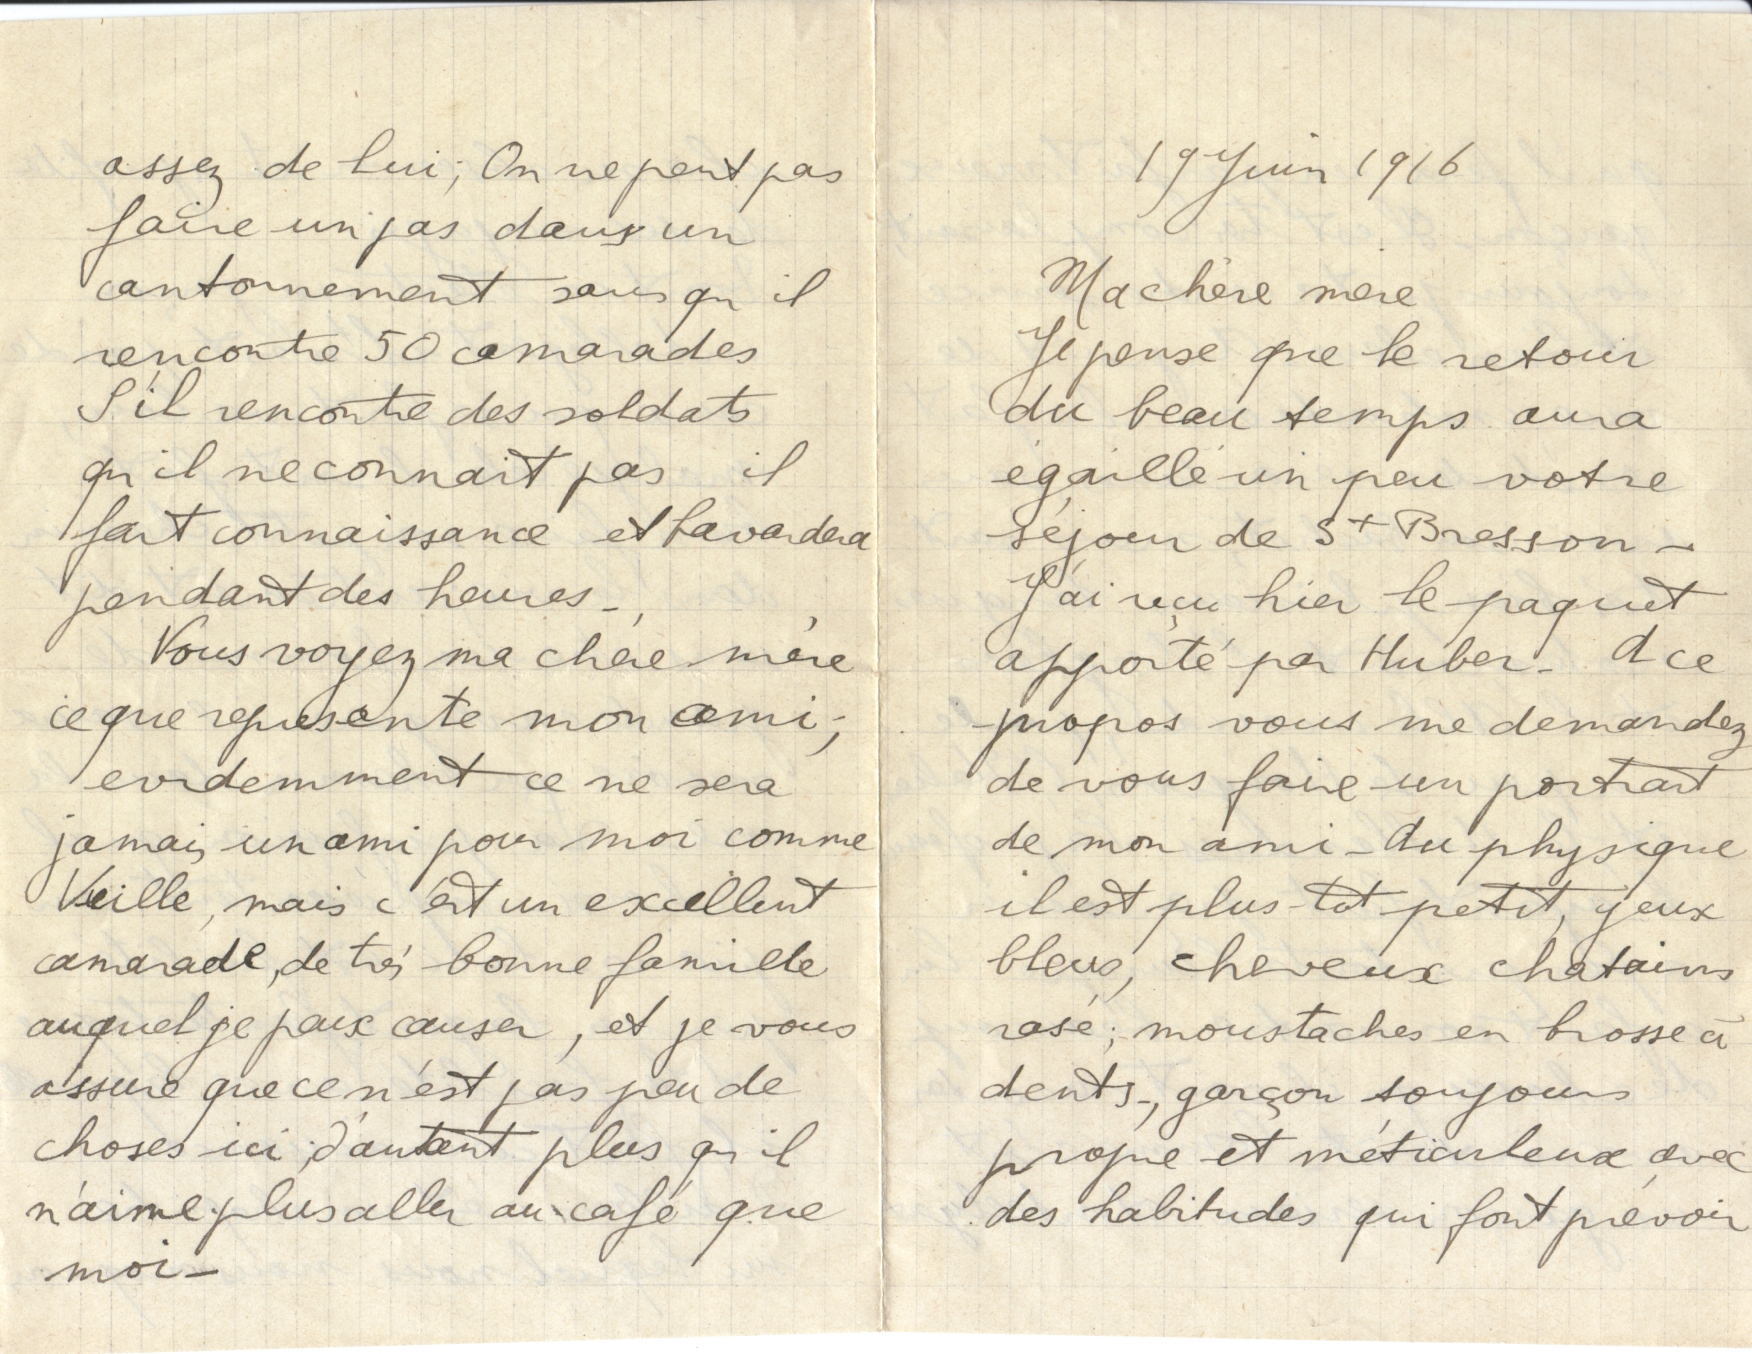 assez de lui; On ne peut pas
faire un pas dans un
cantonnement sans qu il
rencontre 50 camarades
S'il rencontre des soldats
qu il ne connait pas il
fait connaissance et bavardera
pendant des heures -
Vous voyez ma chère mère
ce que represente mon ami;
evidemment ce ne sera
jamais un ami pour moi comme
Veille, mais c'est un excellent
camarade, de très bonne famille
auquel je peux causer, et je vous
assure que ce n'est pas peu de
choses ici; d'autant plus qu il
n'aime plus aller au café que
moi -
19 Juin 1916
Ma chère mère
Je pense que le retour
du beau temps aura
égaillé un peu votre
séjour de St Bresson -
J'ai reçu hier le paquet
apporté par Huber - A ce
propos vous me demandez
de vous faire un portrait
de mon ami - Au physique
il est plus tot petit, yeux
bleus, cheveux chatains
rasé; moustaches en brosse à
dents -, garçon toujours
propre et méticuleux avec
des habitudes qui font prévoir